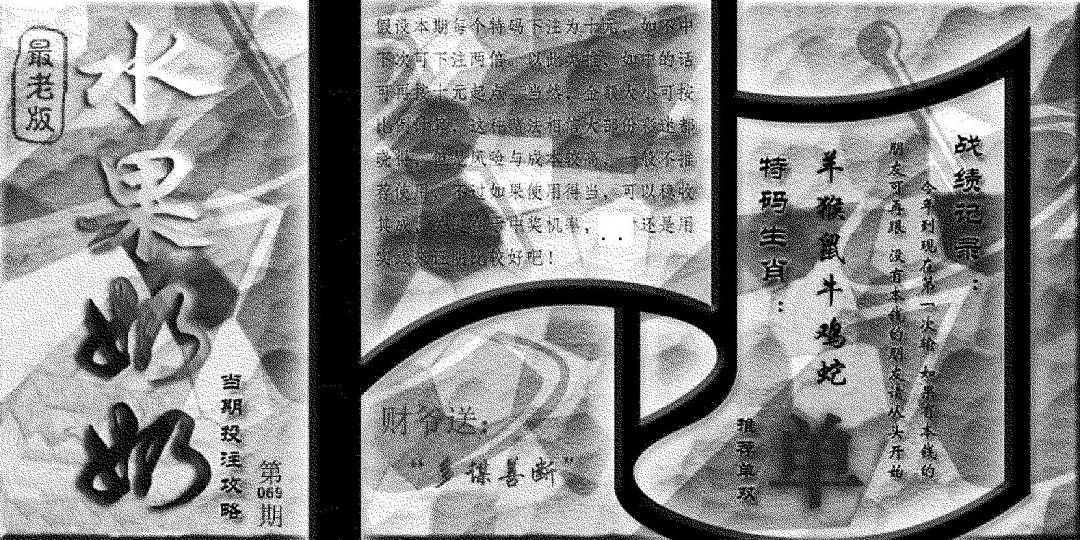 最老版
水果奶奶
当期投注攻略
第069期
假设本期每个特码下注为十元，如不中
下次可下注两倍，以此类推，如中的话
可再按十元起点，当然，金额大小可按
这种赌法相信大部份彩迷都
风险与成本较高，一般不推
荐使用，不过如果使用得当，可以稳收
中奖机率，
还是用
比较好吧！
财爷送：
“多谋善断”
战绩记录：
今年到现在第一次输 如果有本钱的
朋友可再跟 没有本钱的朋友请从头开始
羊猴鼠牛鸡蛇
特码生肖：
单
推荐单双